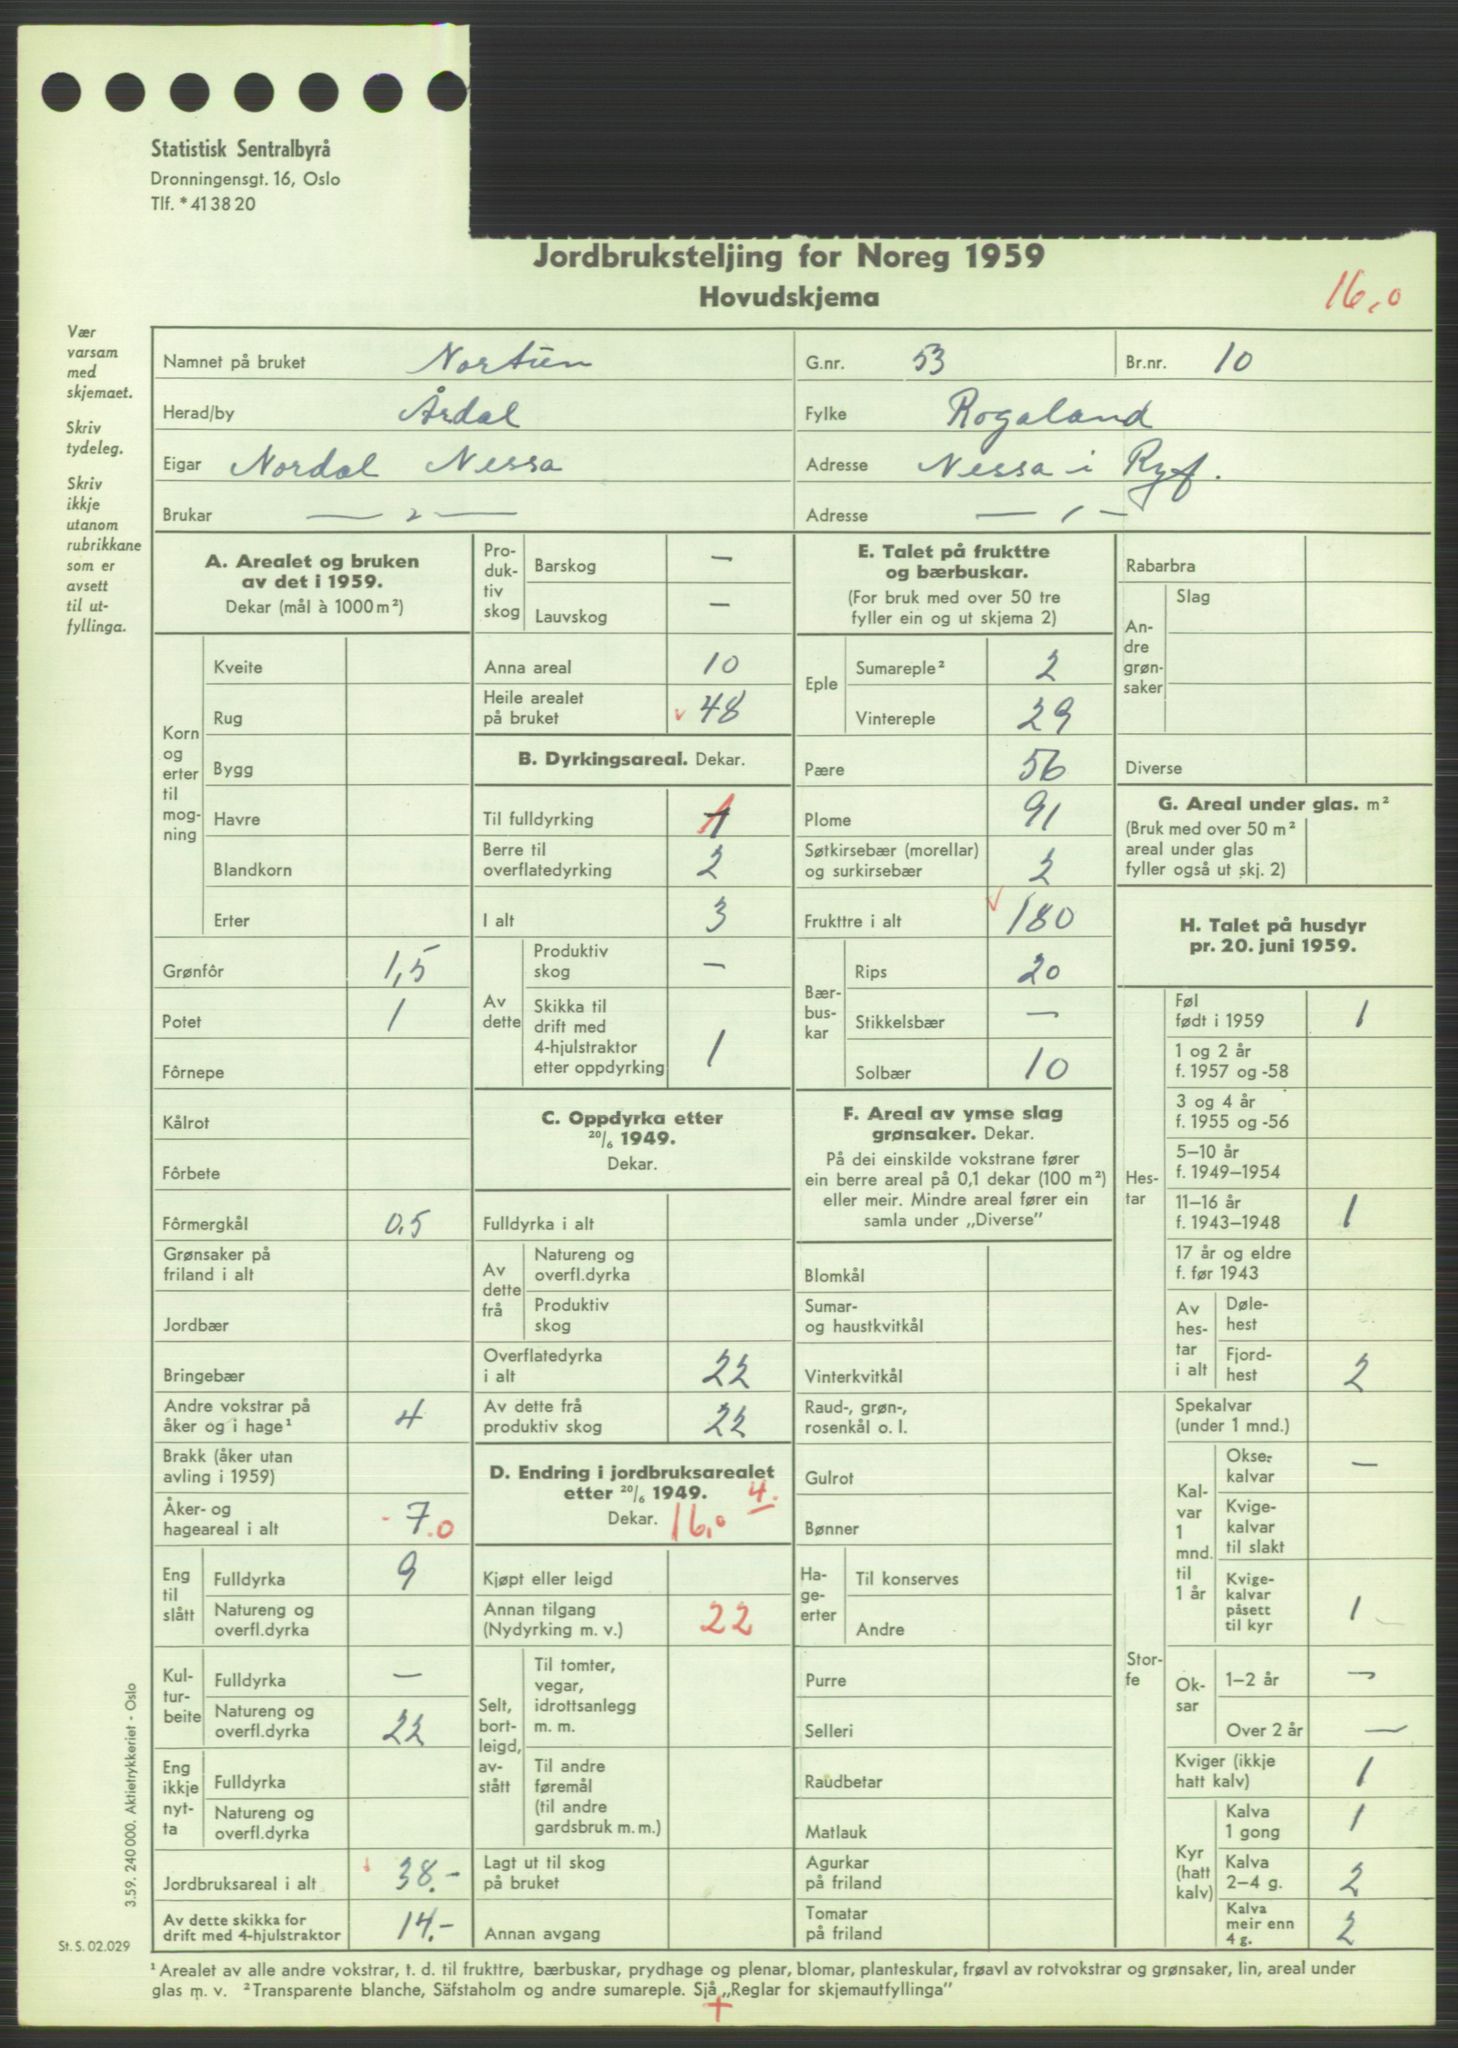 Statistisk Sentralbyrå
Dronningensgt. 16, Oslo
Tlf. * 41 38 20
Jordbruksteljing for Noreg 1959
Hovudskjema
16,0
Vær
varsam
med
skjemaet.
Skriv
tydeleg.
Skriv
ikkje
utanom
rubrikkane
som er
avsett
til ut-
fyllinga.
Namnet på bruket Nortun G.nr. 53 Br.nr. 10
Herad/by Årdal Fylke Rogaland
Eigar Nordal Nessa Adresse Nessa i Ryf.
Brukar — " — Adresse — " —
A. Arealet og bruken
av det i 1959.
Dekar (mål à 1000 m²)
Korn
og
erter
til
mog-
ning
Kveite
Rug
Bygg
Havre
Blandkorn
Erter
Grønfôr 1,5
Potet 1
Fôrnepe
Kålrot
Fôrbete
Fôrmergkål 0,5
Grønsaker på
friland i alt
Jordbær
Bringebær
Andre vokstrar på
åker og i hage¹ 4
Brakk (åker utan
avling i 1959)
Åker- og
hageareal i alt 7.0
Eng
til
slått
Fulldyrka 9
Natureng og
overfl.dyrka
Kul-
tur-
beite
Fulldyrka —
Natureng og
overfl.dyrka 22
Eng
ikkje
nyt-
ta
Fulldyrka
Natureng og
overfl.dyrka
Jordbruksareal i alt 38.-
Av dette skikka for
drift med 4-hjulstraktor 14.-
Pro-
duk-
tiv
skog
Barskog —
Lauvskog —
Anna areal 10
Heile arealet
på bruket 48
B. Dyrkingsareal. Dekar.
Til fulldyrking 1
Berre til
overflatedyrking 2
I alt 3
Av
dette
Produktiv
skog —
Skikka til
drift med
4-hjulstraktor
etter oppdyrking 1
C. Oppdyrka etter
20/6 1949.
Dekar.
Fulldyrka i alt
Av
dette
frå
Natureng og
overfl.dyrka
Produktiv
skog
Overflatedyrka
i alt 22
Av dette frå
produktiv skog 22
D. Endring i jordbruksarealet
etter 20/6 1949. 4.
Dekar. 16,0
Kjøpt eller leigd
Annan tilgang
(Nydyrking m. v.) 22
Selt,
bort-
leigd,
av-
stått
Til tomter,
vegar,
idrottsanlegg
m. m.
Til andre
føremål
(til andre
gardsbruk m. m.)
Lagt ut til skog
på bruket
Annan avgang
E. Talet på frukttre
og bærbuskar.
(For bruk med over 50 tre
fyller ein og ut skjema 2)
Eple
Sumareple² 2
Vintereple 29
Pære 56
Plome 91
Søtkirsebær (morellar)
og surkirsebær 2
Frukttre i alt 180
Bær-
bus-
kar
Rips 20
Stikkelsbær —
Solbær 10
F. Areal av ymse slag
grønsaker. Dekar.
På dei einskilde vokstrane fører
ein berre areal på 0,1 dekar (100 m²)
eller meir. Mindre areal fører ein
samla under „Diverse”
Blomkål
Sumar-
og haustkvitkål
Vinterkvitkål
Raud-, grøn-,
rosenkål o. l.
Gulrot
Bønner
Ha-
ge-
erter
Til konserves
Andre
Purre
Selleri
Raudbetar
Matlauk
Agurkar
på friland
Tomatar
på friland
Rabarbra
An-
dre
grøn-
saker
Slag
Diverse
G. Areal under glas. m²
(Bruk med over 50 m²
areal under glas
fyller også ut skj. 2)
H. Talet på husdyr
pr. 20. juni 1959.
Hes-
tar
Føl
født i 1959 1
1 og 2 år
f. 1957 og -58
3 og 4 år
f. 1955 og -56
5–10 år
f. 1949–1954
11–16 år
f. 1943–1948 1
17 år og eldre
f. før 1943
Av
hes-
tar
i alt
Døle-
hest
Fjord-
hest 2
Stor-
fe
Spekalvar
(under 1 mnd.)
Kal-
var
1
mnd.
til
1 år
Okse-
kalvar —
Kvige-
kalvar
til slakt
Kvige-
kalvar
påsett
til kyr 1
Ok-
sar
1–2 år —
Over 2 år —
Kviger (ikkje
hatt kalv) 1
Kyr
(hatt
kalv)
Kalva
1 gong 1
Kalva
2–4 g. 2
Kalva
meir enn
4 g. 2
3.59. 240 000. Aktietrykkeriet - Oslo
St. S. 02.029
¹ Arealet av alle andre vokstrar, t. d. til frukttre, bærbuskar, prydhage og plenar, blomar, planteskular, frøavl av rotvokstrar og grønsaker, lin, areal under
glas m. v. ² Transparente blanche, Säfstaholm og andre sumareple. Sjå „Reglar for skjemautfyllinga”
+